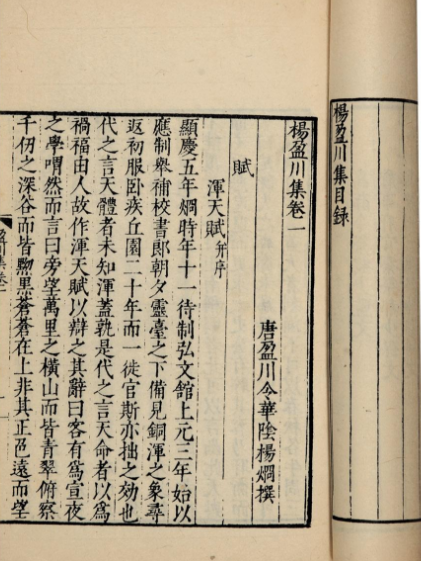 楊盈川集目録
楊盈川集卷一
唐盈川令華陰楊烱撰
賦
渾天賦并序
顯慶五年烱時年十一待制弘文館上元三年始以
應制舉補校書郎朝夕靈臺之下備見銅渾之象尋
返初服卧疾丘園二十年而一徙官斯亦拙之効也
代之言天體者未知渾蓋孰是代之言天命者以爲
禍福由人故作渾天賦以辯之其辭曰客有爲宣夜
之學喟然而言曰旁望萬里之橫山而皆青翠俯察
千仞之深谷而皆黝黑蒼蒼在上非其正色遠而望
盈川集卷一